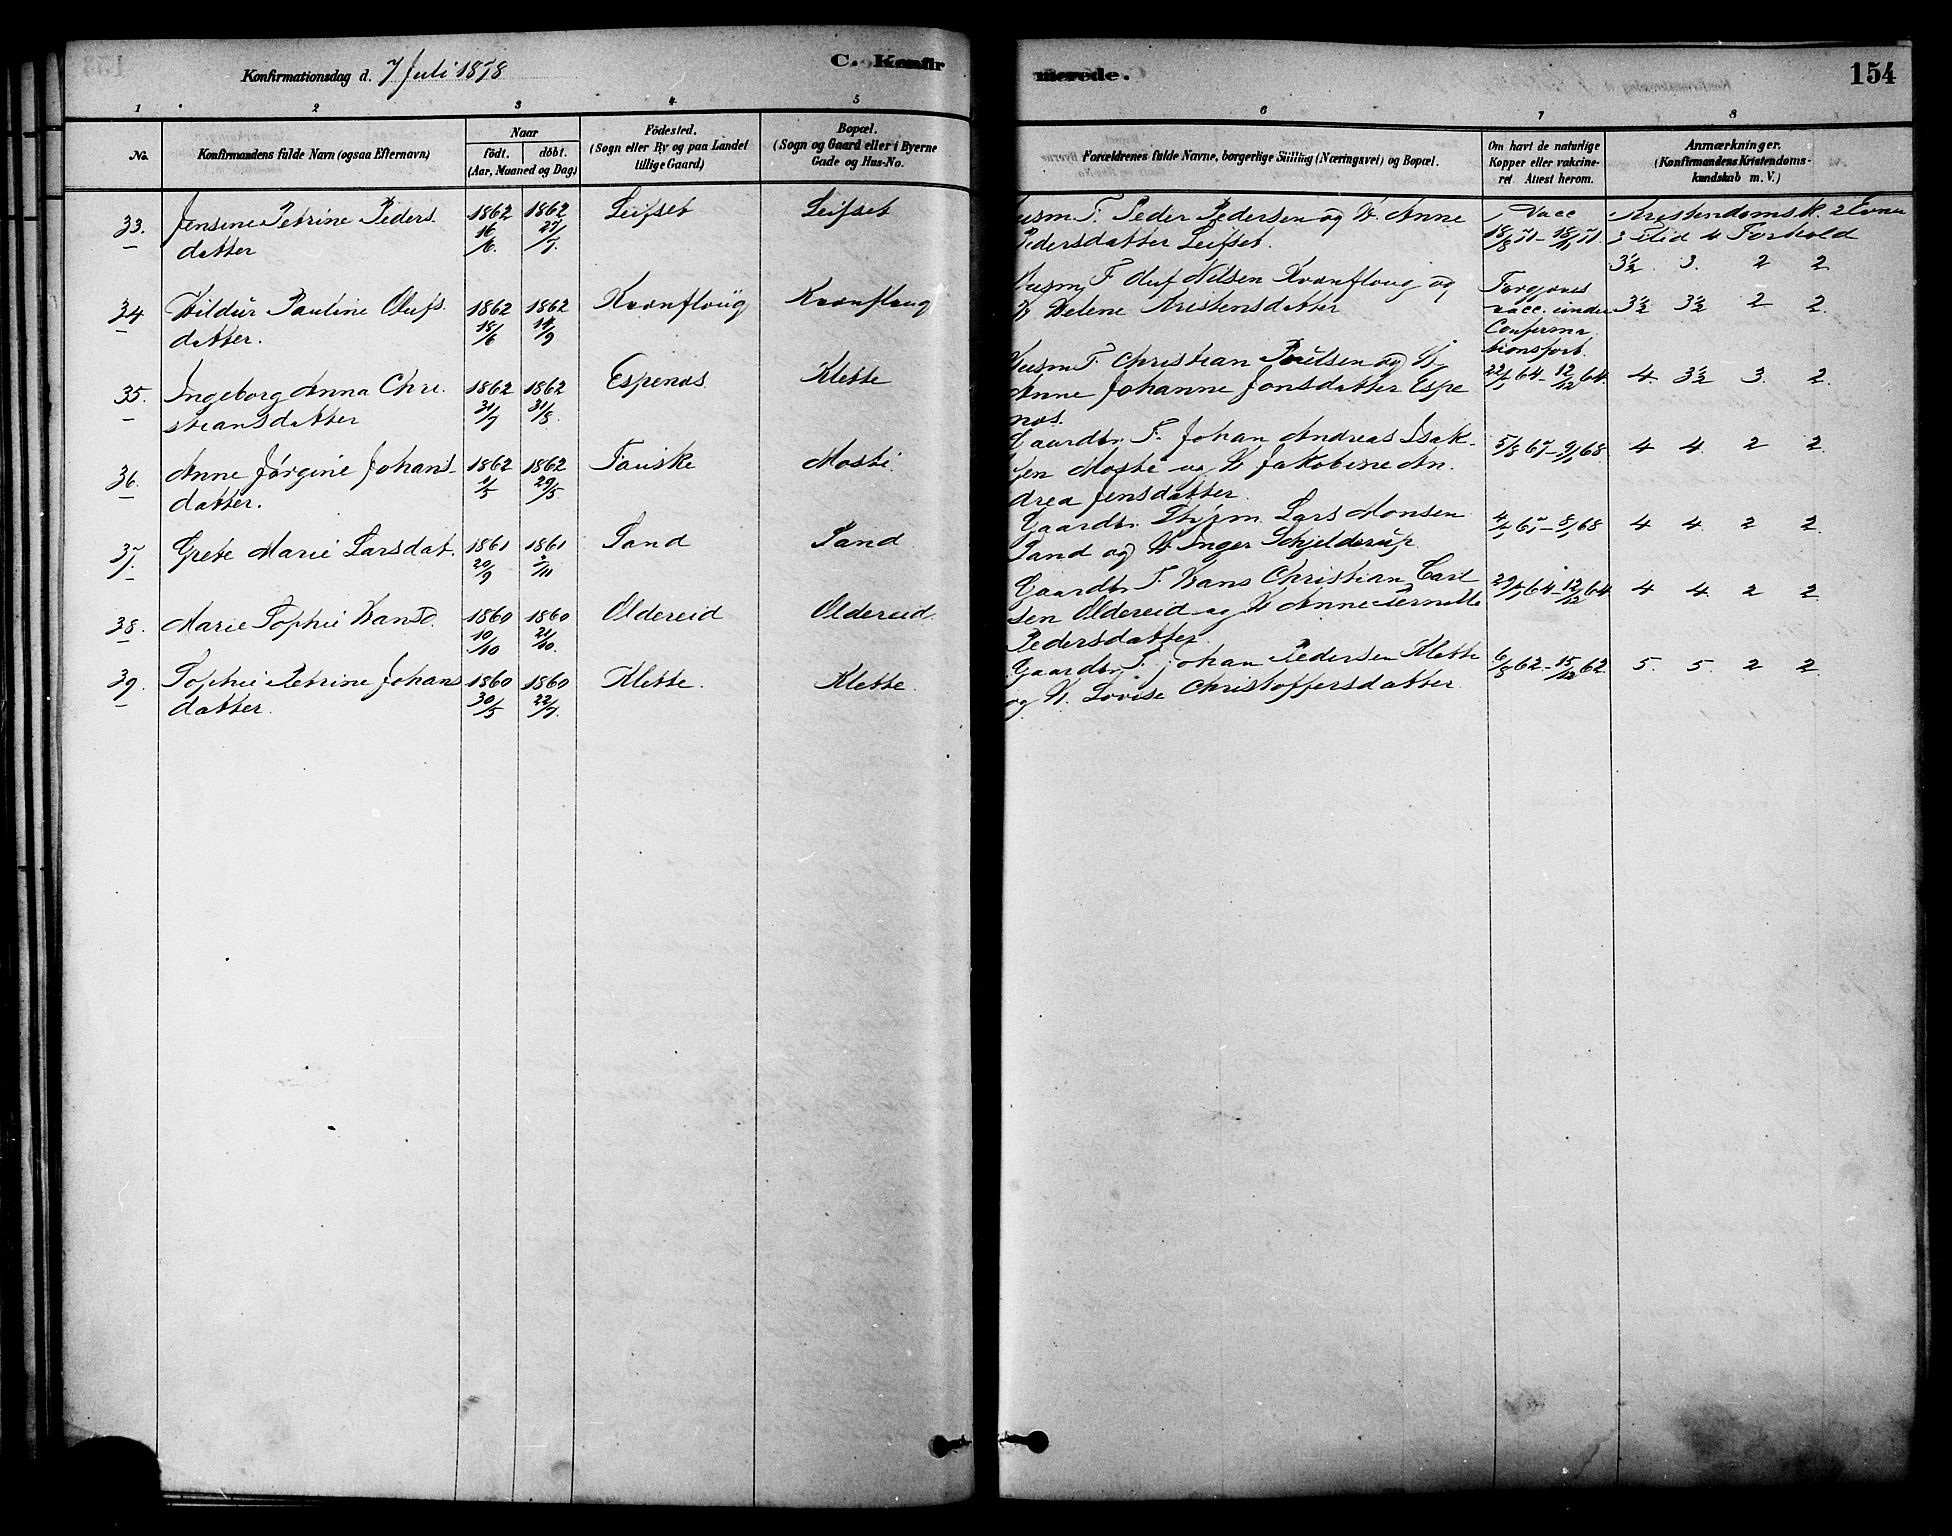 Konfirmationsdag d. 7 Juli 1878
C. Konfir
merede.
154
1 2 3 4 5 6 7 8
No.
Konfirmandens fulde Navn (ogsaa Efternavn)
Naar
født. døbt.
(Aar, Maaned og Dag)
Födested.
(Sogn eller By og paa Landet
tillige Gaard)
Bopæl.
(Sogn og Gaard eller i Byerne
Gade og Hus-No.
Forældrenes fulde Navne, borgerlige Stilling (Næringsvei) og Bopæl.
Om havt de naturlige
Kopper eller vakcine-
ret. Attest herom.
Anmærkninger.
(Konfirmandens Kristendoms-
kundskab m. V.)
33. Jensine Petrine Peders
datter
1862 16/6. 1862 27/7. Leifset Leifset
Husm. F. Peder Pedersen og H. Anne
Pedersdatter Leifset.
Vacc
18/8 71 - 18/11 71
Kristendomsk. 2 Evner
3 Flid 4 Forhold
3½. 3. 2 2
34 Hildur Pauline Olufs
datter.
1862 18/6 1862 14/9 Kvænfloug Kvænfloug
Husm. F Oluf Nilsen Kvænfloug og
H Helene Kristensdatter
Forgjæves
vacc. under
Confirma
tionsforb.
3½ 3½ 2 2.
35. Ingeborg Anna Chri
stiansdatter
1862 31/7 1862 31/8. Espenæs Klette
Husm F. Christian Poulsen og H.
Anne Johanne Jonsdatter Espe
næs.
22/7 64 - 12/12 64. 4. 3½ 3. 2.
36. Anne Jørgine Johans-
datter.
1862 1/5 1862 29/5 Fauske Mosti
Gaardbr. F. Johan Andreas Isak-
sen Mosti og H Jakobine An.
drea Jensdatter.
5/8 67 - 9/1 68. 4 4. 2 2.
37. Grete Marie Larsdat.
1861 20/9 1861 /10 Sand Sand
Gaardbr. Lars Monsen
Sand og H Inger Schjelderup.
67 - 8/1 68 4 4. 2 2
38. Marie Sophie Hansd.
1860 10/10 1860 21/10. Oldereid Oldereid
Gaardbr F. Hans Christian Carl
sen Oldereid og H Anne Pernille
Pedersdatter.
29/7 64 - 12/12 64 4 4. 2 2.
39. Sophie Petrine Johans
datter.
1860 30/5 1860 22/7. Klette. Klette.
Gaardbr F. Johan Pedersen Klette
og H. Lovise Christoffersdatter.
6/8 62 - 15/12 62. 5. 5 2 2.